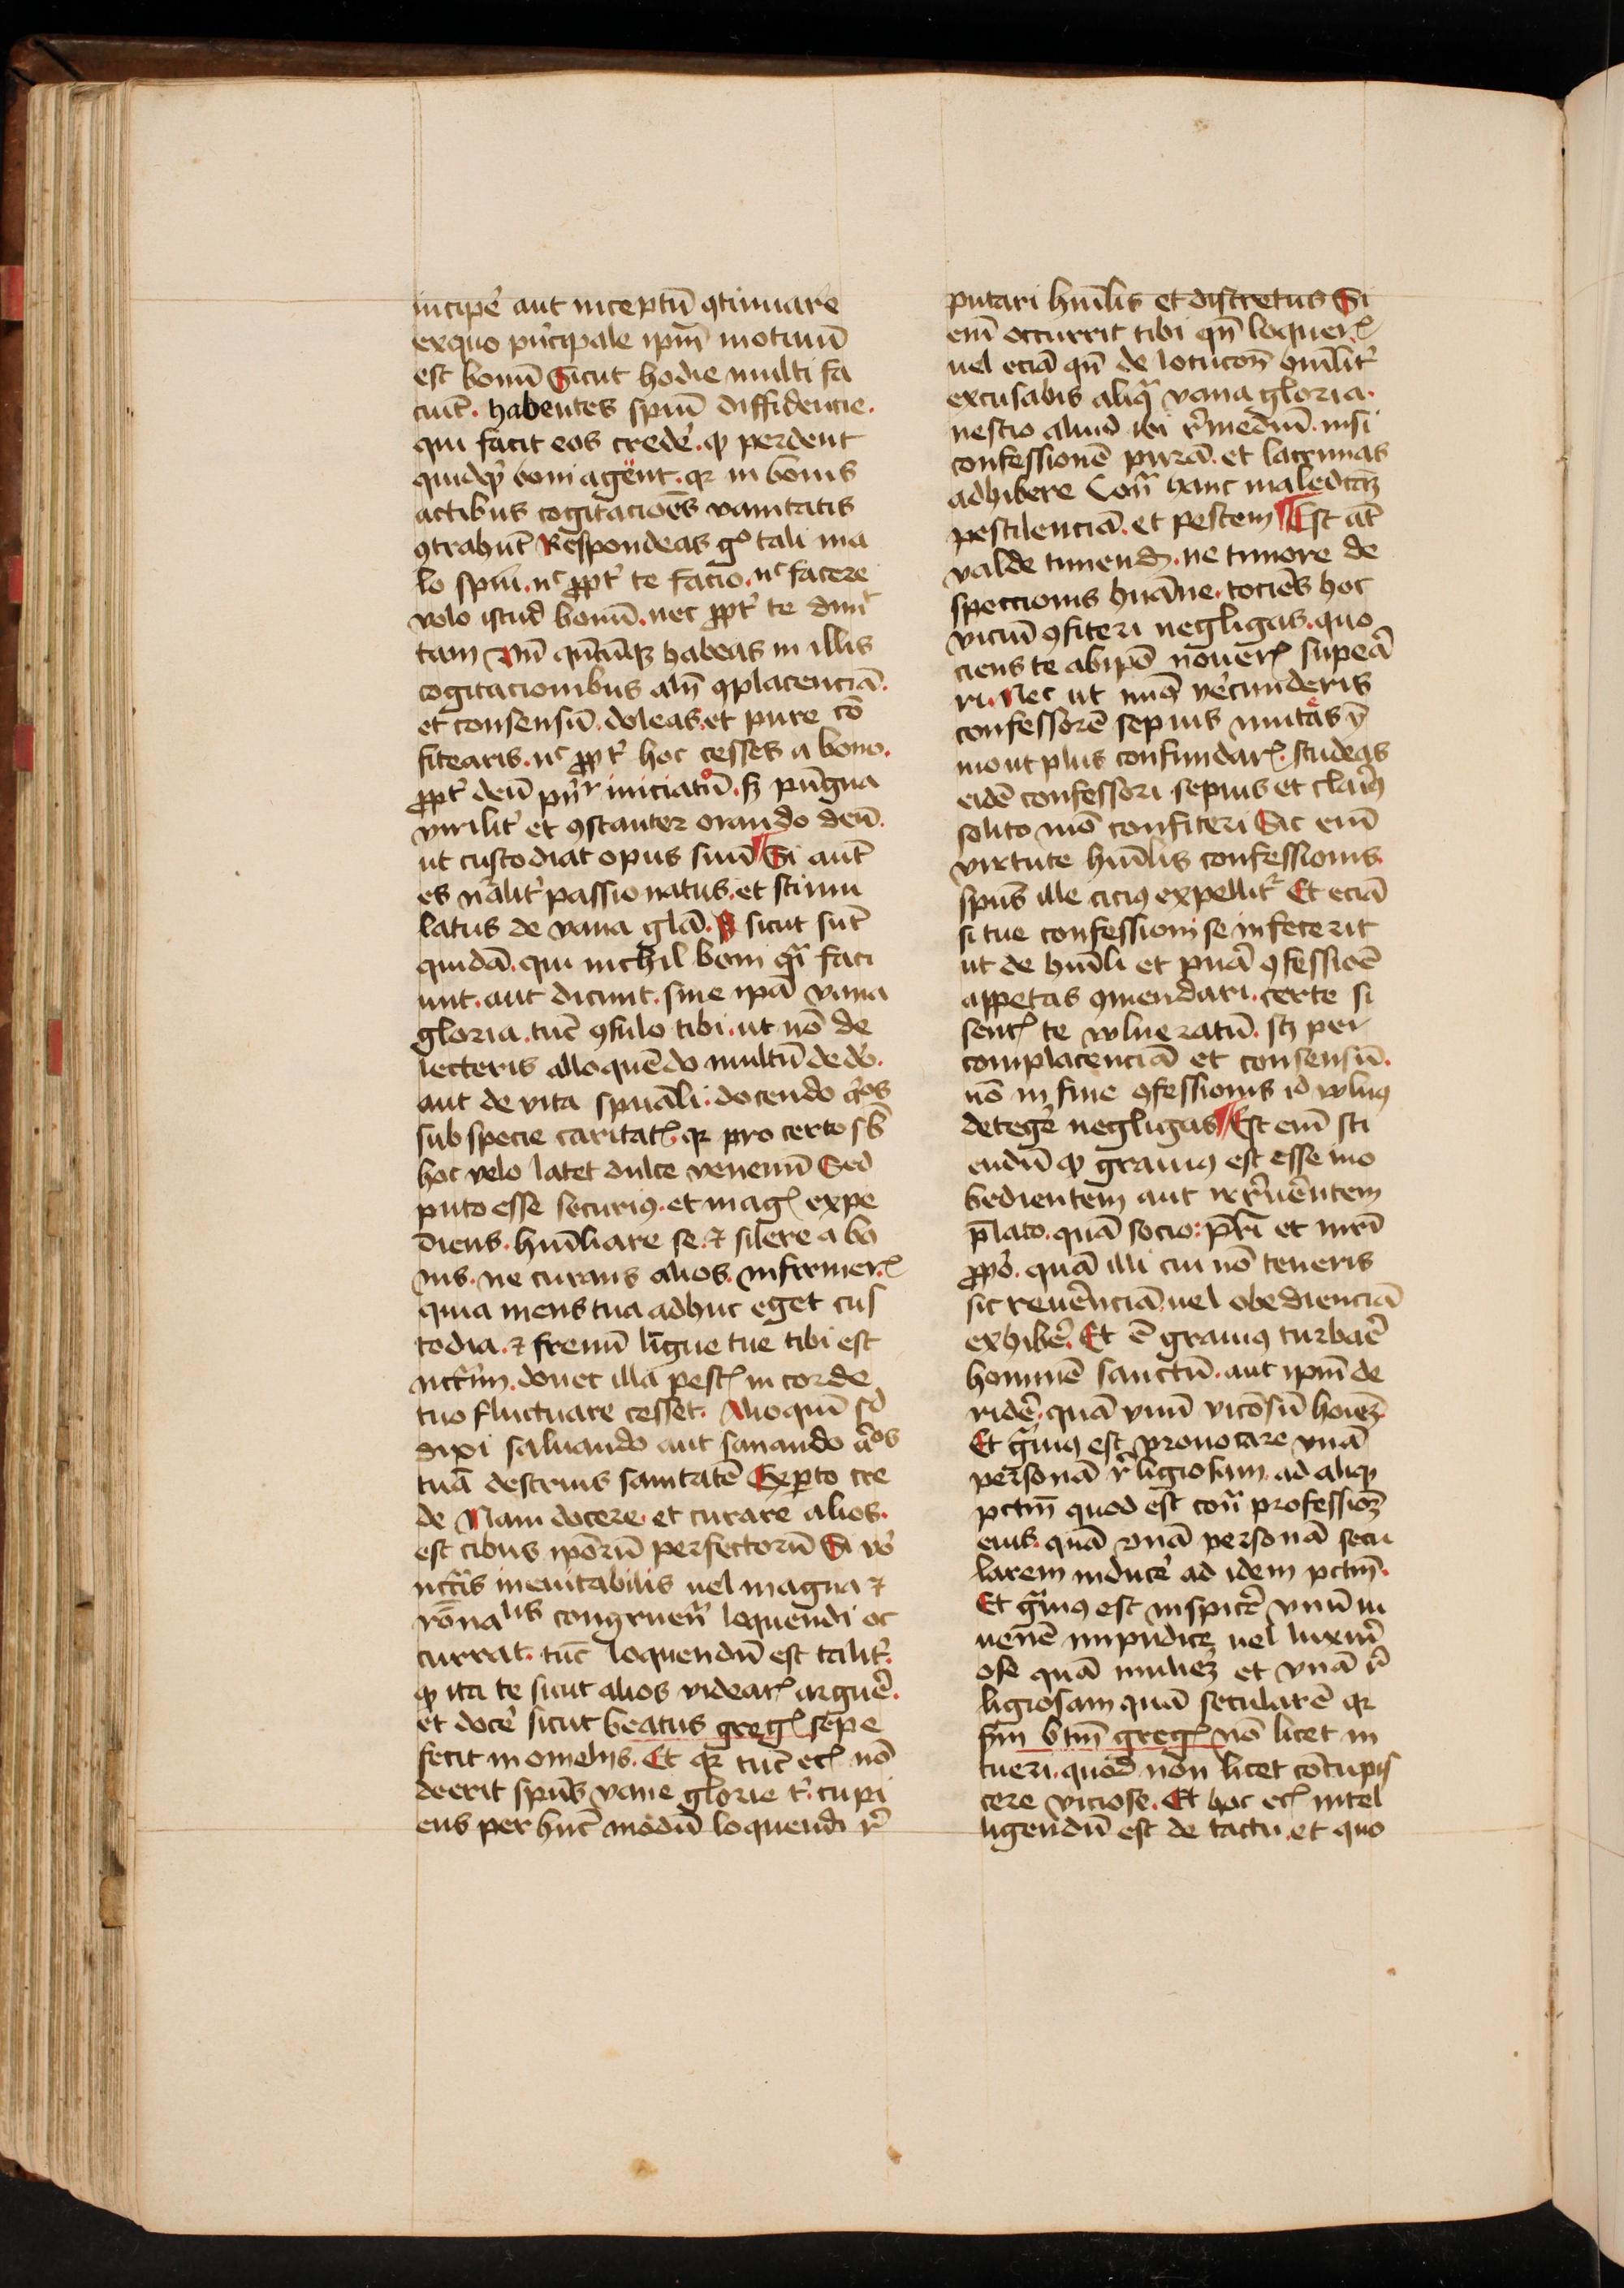 incipe᷑ aut inceptū ꝯtinuare
exquo pͥncipale ipm̄ motiuū
est bonū Sicut hodie multi fa
ciūt. habentes spm̄ diffidencie.
qui facit eos crede᷑. ꝙ perdent
quidqͥd boni agent. qꝛ in bonis
actibus cogitaciōēs vanitatis
ꝯtrahūt Respondeas gͦ tali ma
lo spūi. nͨ ꝓpt᷑ te facio. nͨ facere
volo istud bonū. nec ꝓpt᷑ te dimit
tam Vn̄ qn̄cūqꝫ habeas in illis
cogitacionibus aliq̄ ꝯplacenciā.
et consensū. doleas. et pure cō
fitearis. nͨ ꝓpt᷑ hoc cesses a bono.
ꝓpt᷑ deū iniciatū. sꝫ pūgna
virilit᷑ et ꝯstanter orando deū.
ut custodiat opus suū ¶ Si aut̄
es n̄alit᷑ passionatus. et stimu
latus de vana glā. sicut sūt
quidā. qui nichil boni qͣi faci
unt. aut dicunt. sine ipā vana
gloria. tūc ꝯsulo tibi. ut nō de
lecteris alloquēdo multū de dō.
aut de vita spūali. docendo
sub specie caritatꝭ. qꝛ pro certo sb̄
hoc velo latet dulce venenū Sed
puto esse securiꝯ. et magꝭ expe
diens. humliare se. ⁊ silere a bo
nis. ne curans alios. infirmerꝭ
quia mens tua adhuc eget cus
todia. ⁊ frenū ligue tue tibi est
nccͥm. donec illa pestꝭ in corde
tuo fluctuare cesset. Alioquī sͩ
dixi saluando aut sanando
tuā destruis sanitatē Exꝑto cre
de Nam docere et curare alios.
est cibus ipōrū perfectorū Si v᷑o
nccͥtas ineuitabilis uel magna ⁊
rōnalis congruen̄ loquendi oc
currat. tūc loquendū est talit᷑.
ꝙ ita te sicut alios videarꝭ argue᷑.
et doce᷑ sicut beatus gregꝭ sepe
fecit in omelijs. Et qꝛ tūc ecꝭ nō
deerit spūs vane glorie t᷑. cupi
ens per hūc modū loquendi r᷑
putari hūilis et discretus Si
em̄ occurrit tibi qn̄ loquerꝭ
uel eciā qn̄ de locucōn̄ hūilit᷑
excusabis aliqͣ vana gloria.
nescio aliud ibi r᷑mediū. nisi
confessionē purā. et lacrimas
adhibere Contͣ hanc maledictaꝫ
pestilenciā. et pestem ¶ Est at̄
valde timend̄. ne timore de
speccionis hūāne. tociēs hoc
viciū ꝯfiteri negligas. quo
ciens te abipō nouerꝭ supea᷑
ri. Nec ut minꝯ ve᷑cunderis
confessorē sepius mutas ȳ
mo ut plus confundarꝭ. studeas
eidē confessori sepius et clariꝯ
solito mō confiteri Sic em̄
virtute hūilis confessionis.
spūs ille citiꝯ expellit᷑ Et eciā
si tue confessioni se infecerit
ut de hūili et pura᷑ ꝯfessiōē
appetas ꝯmendari. certe si
sentꝭ te wlneratū. scꝫ per
complacenciā et consensū.
nō in fine ꝯfessionis id wlnꝯ
detege᷑ negligas ¶ Est em̄ sci
endū ꝙ grauiꝯ est esse ino
bedientem aut irr᷑ue᷑ntem
p̄lato. quā socio: pr̄i et mr̄i
ꝓpͥo. quā illi cui nō teneris
sic reue᷑nciā. uel obedienciā
exhibe᷑. Et ē grauiꝯ turbare᷑
hominē sanctū. aut ipm̄ de
ride᷑. quā vnū vicōsū hoīeꝫ
Et gͣuiꝯ est prouocare vnā
personā r᷑ligiosam. ad aliqͩ
pctm̄ quod est contͣ professioꝫ
eius. quā vnā personā secu
larem induce᷑ ad idem pctm̄.
Et gͣuiꝯ est inspice᷑ vnū iu
uenē impudice uel luxuri
ose quā mulieꝫ et vnā r᷑
ligiosam quā secularē qꝛ
scdm̄ btm̄ gregꝭ nō licet in
tueri. quod non licet cōcupis
cere viciose. Et hoc ecꝭ intel
ligendū est de tactu. et quo